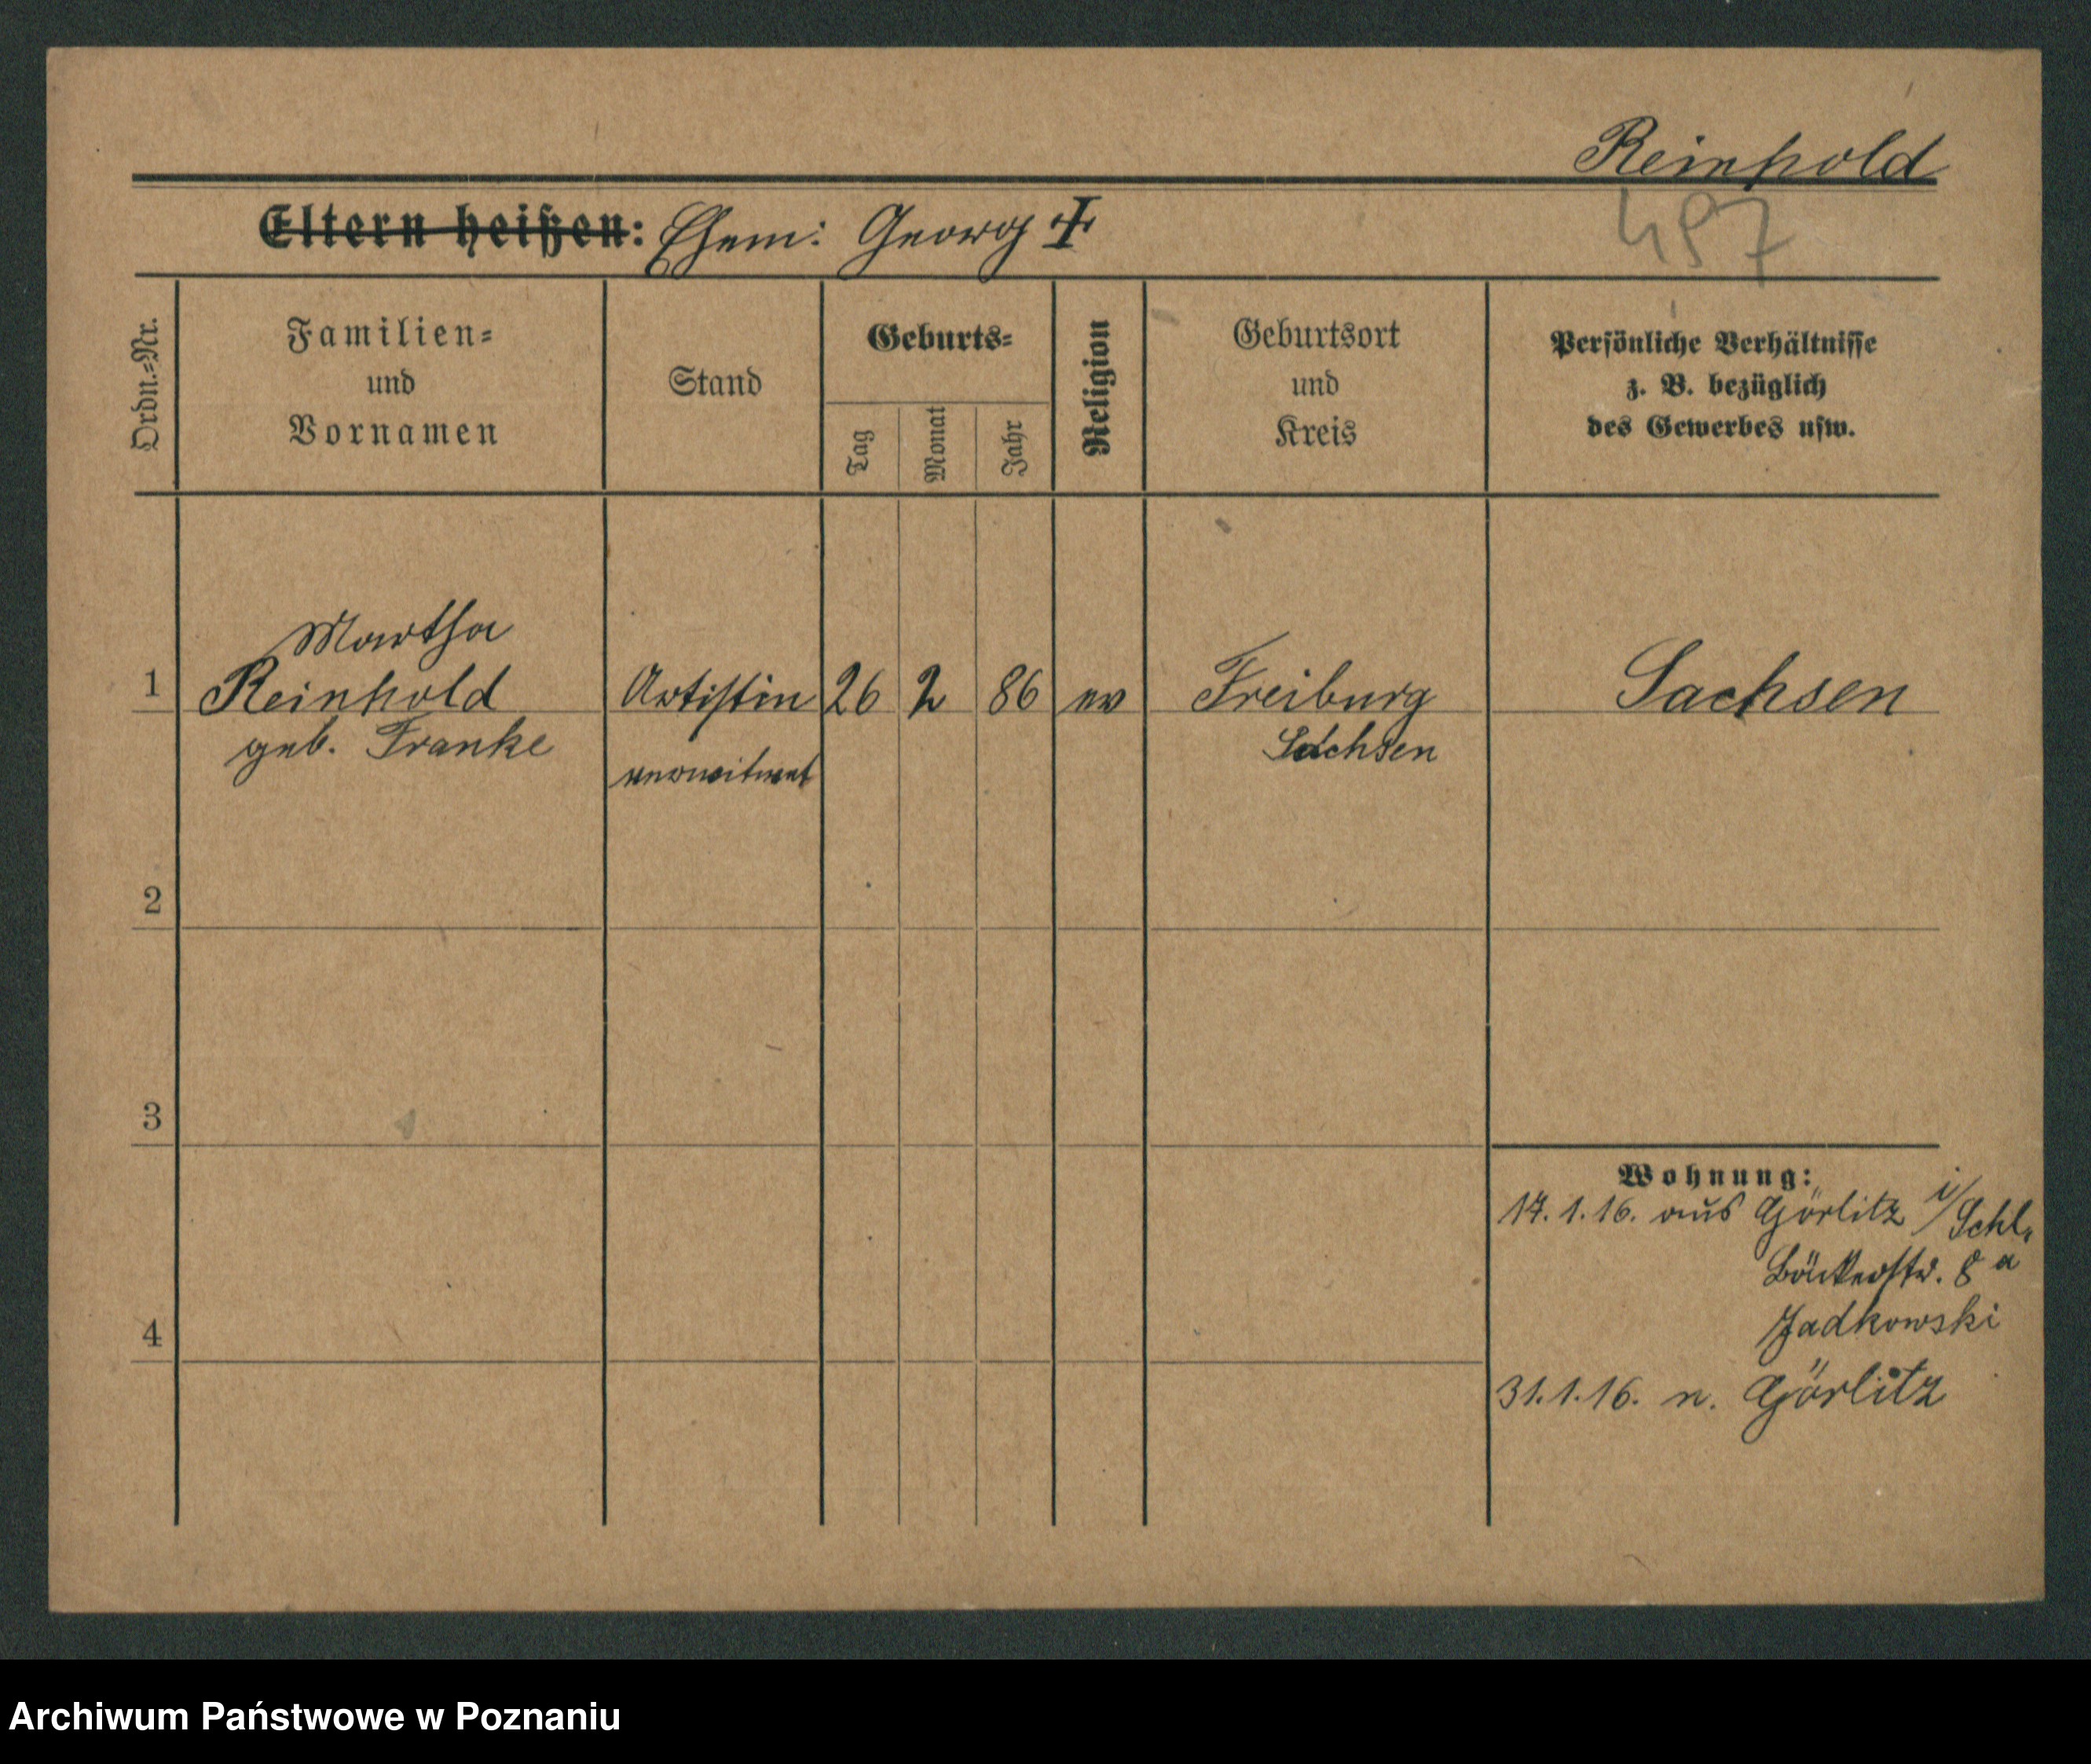 Reinhold
497
Eltern heißen: Ehem: Georg ✝
Ordn.=Nr.
Familien=
und
Vornamen
Stand
Geburts=
Tag
Monat
Jahr
Religion
Geburtsort
und
Kreis
Persönliche Verhältnisse
z. B. bezüglich
des Gewerbes usw.
Martha
1 Reinhold Artistin 26 2 86 ev Freiburg Sachsen
geb. Franke Sachsen
verwitwet
2
3
4
Wohnung:
17.1.16. aus Görlitz i/Schl.
Bäckerstr. 8a
Jadkowski
31.1.16. n. Görlitz
Archiwum Państwowe w Poznaniu